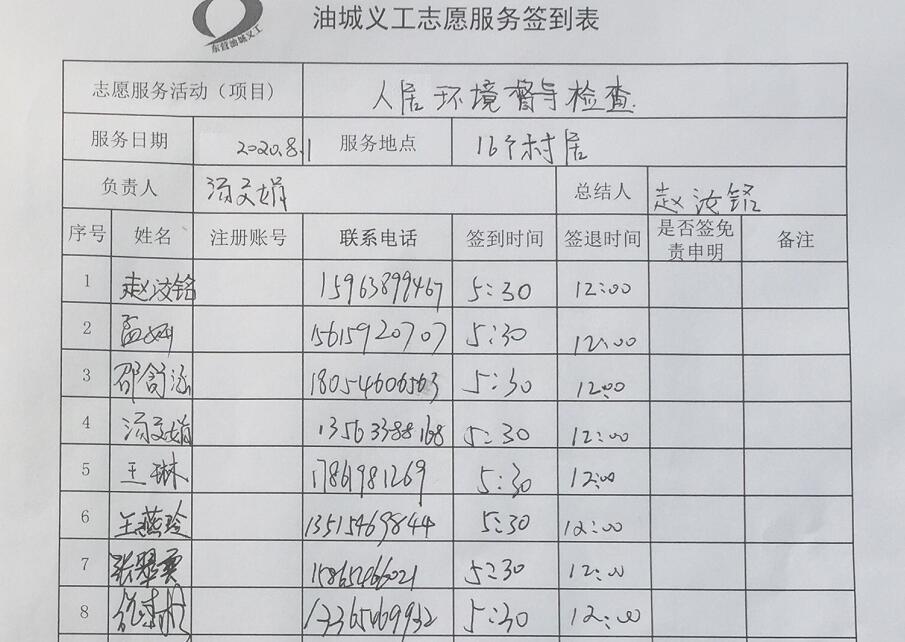 东营油城义工
油城义工志愿服务签到表
志愿服务活动（项目） 人居环境督导检查
服务日期 2020.8.1 服务地点 16个村居
负责人 汤文娟 总结人 赵汝铭
序号 姓名 注册账号 联系电话 签到时间 签退时间 是否签免责申明 备注
1 赵汝铭 15963899467 5:30 12:00
2 孟妍 15615920707 5:30 12:00
3 邵舒涵 18054606563 5:30 12:00
4 汤文娟 13563388168 5:30 12:00
5 王琳 1786981269 5:30 12:00
6 王燕玲 13515469844 5:30 12:00
7 张翠 15865466021 5:30 12:00
8 5:30 12:00